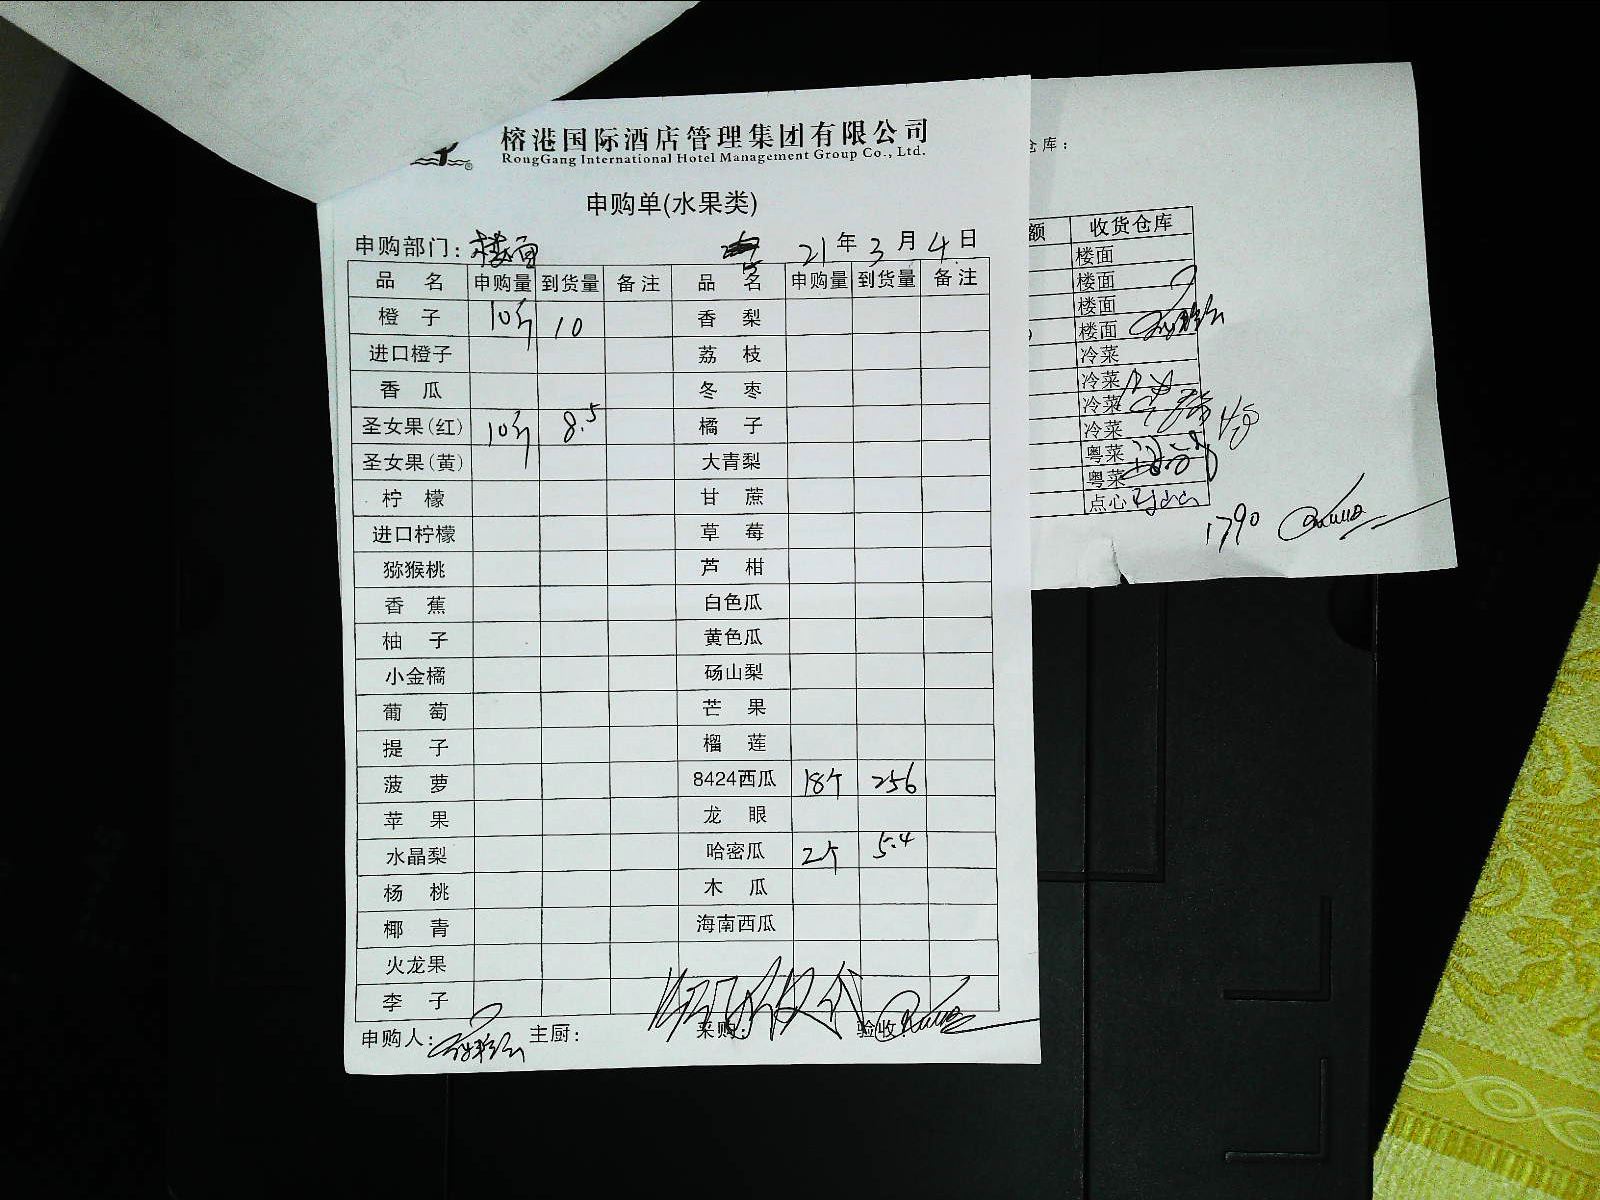 榕港国际酒店管理集团有限公司
RongGang International Hotel Management Group Co., Ltd.
申购单(水果类)
申购部门: 楼面 21年3月4日
品名 申购量 到货量 备注 品名 申购量 到货量 备注
橙子 10斤 10 香梨
进口橙子 荔枝
香瓜 冬枣
圣女果(红) 10斤 8.5 橘子
圣女果(黄) 大青梨
柠檬 甘蔗
进口柠檬 草莓
猕猴桃 芦柑
香蕉 白色瓜
柚子 黄色瓜
小金橘 砀山梨
葡萄 芒果
提子 榴莲
菠萝 8424西瓜 18个 256
苹果 龙眼
水晶梨 哈密瓜 2个 5.4
杨桃 木瓜
椰青 海南西瓜
火龙果
李子
申购人: 主厨: 采购: 验收
仓库:
额 收货仓库
楼面
楼面
楼面
楼面
冷菜
冷菜
冷菜
冷菜
粤菜
粤菜
点心
1790